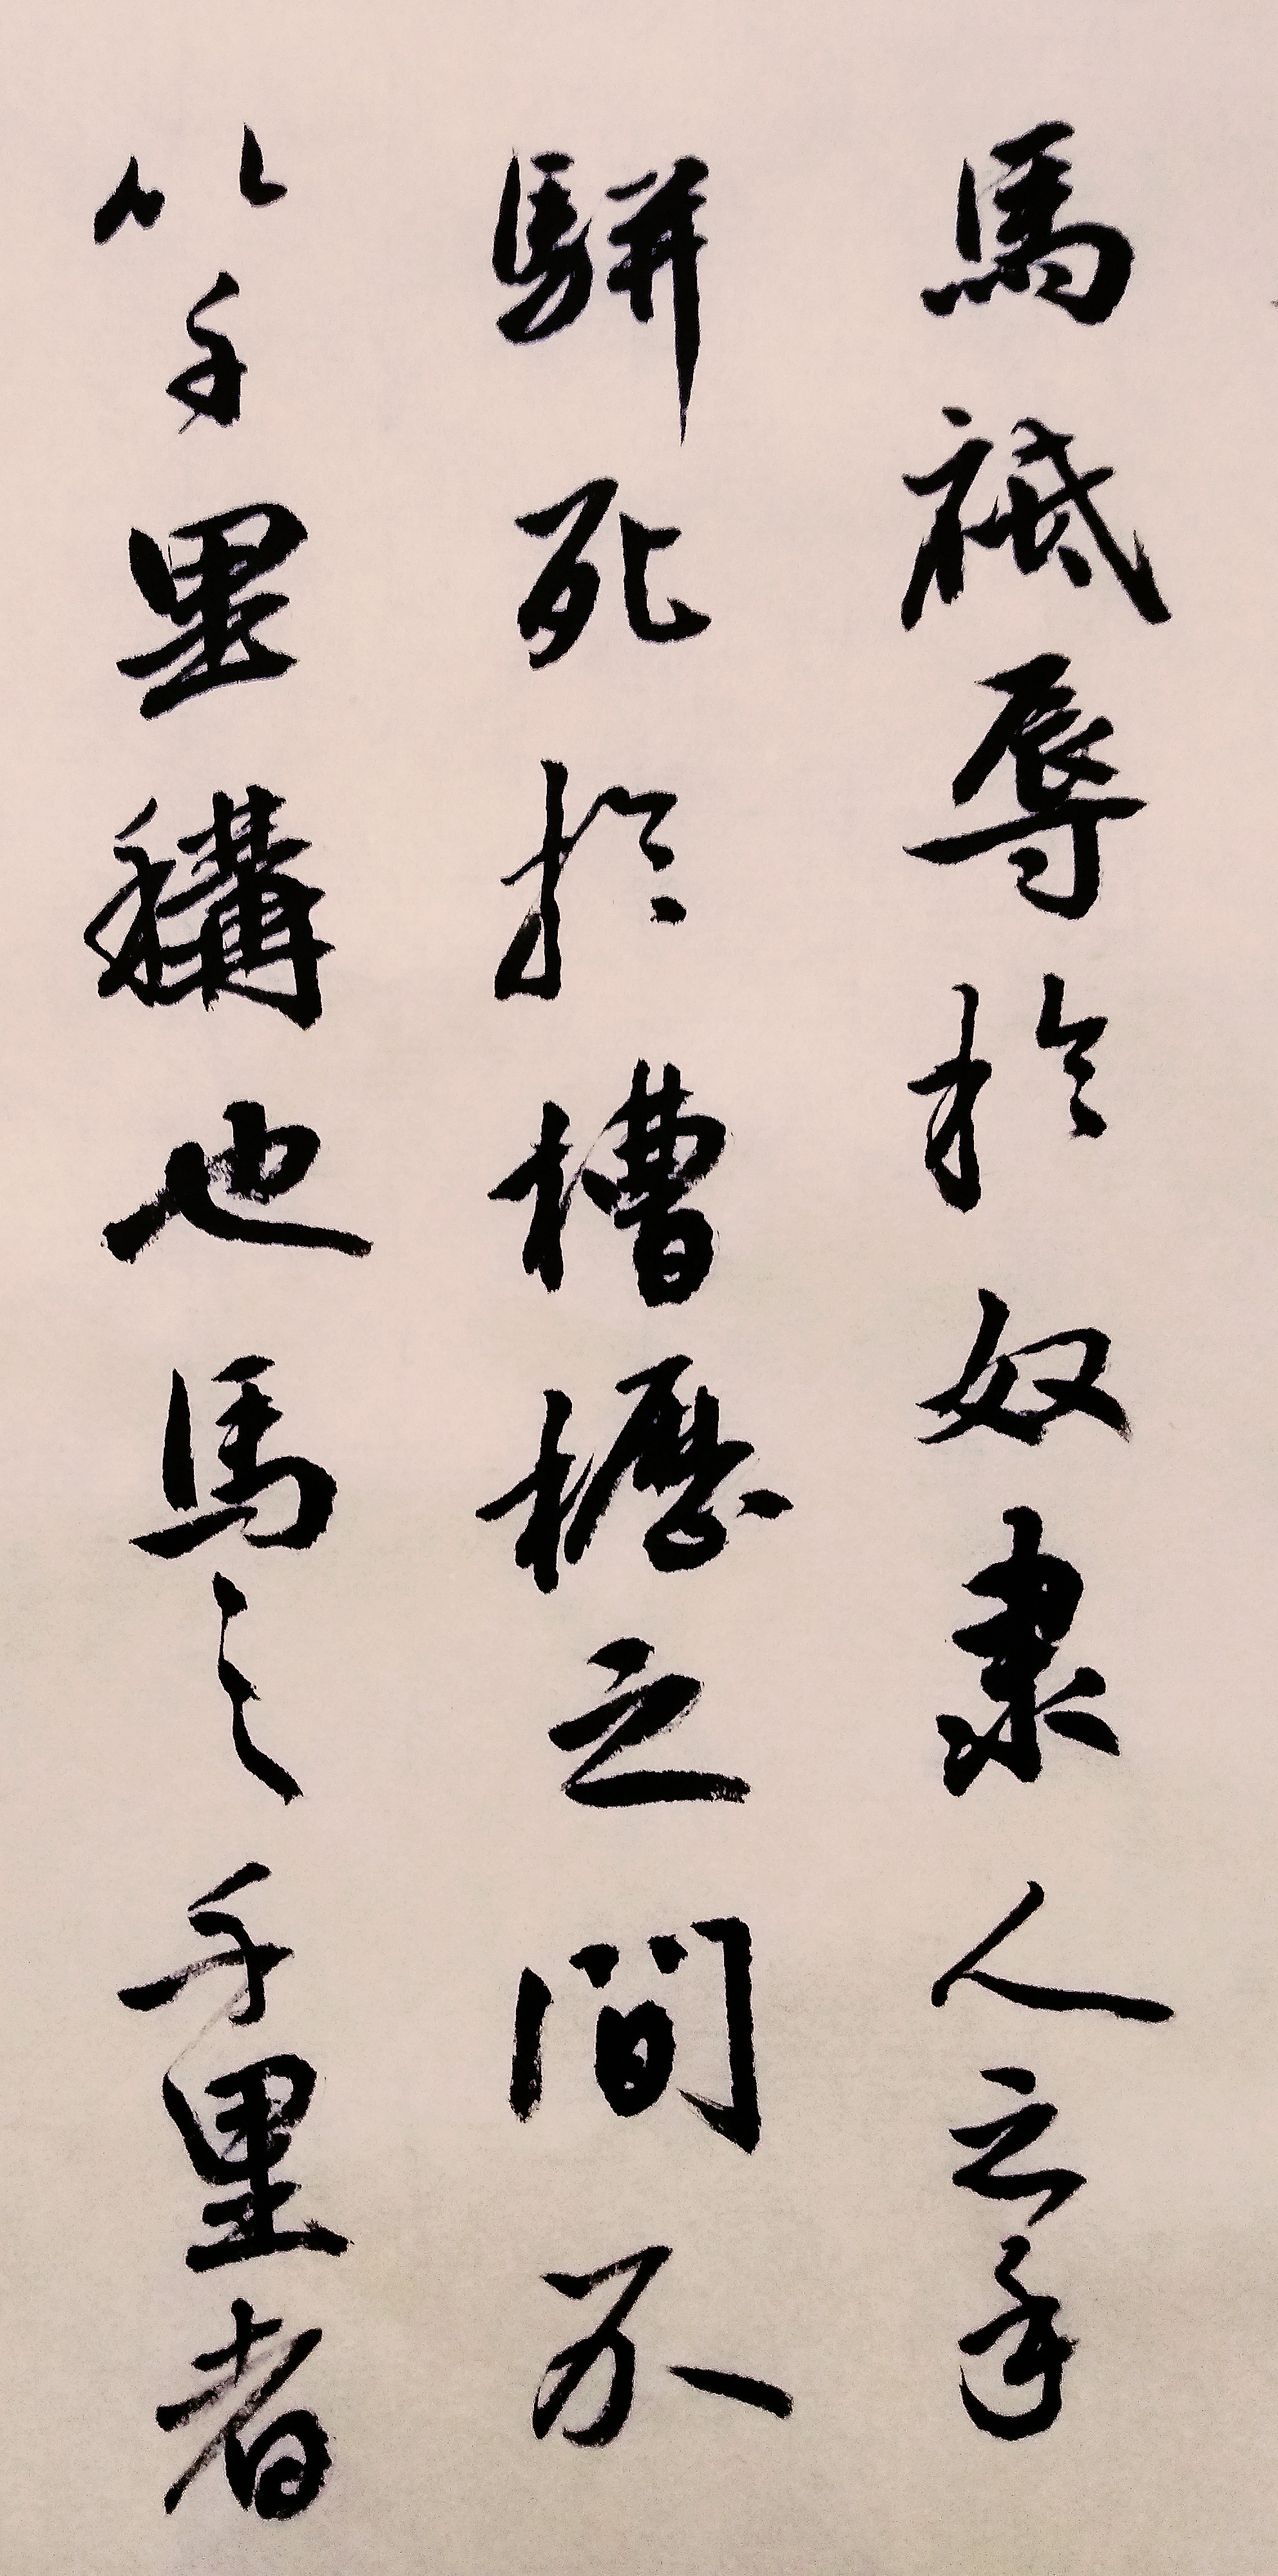 馬祇辱於奴隷人之手
駢死於槽櫪之間不
以千里稱也馬之千里者